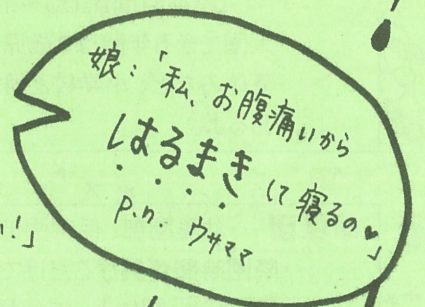 娘:「私、お腹痛いから
はるまき
して寝るの♥」
p.n. ウサママ
!」
!